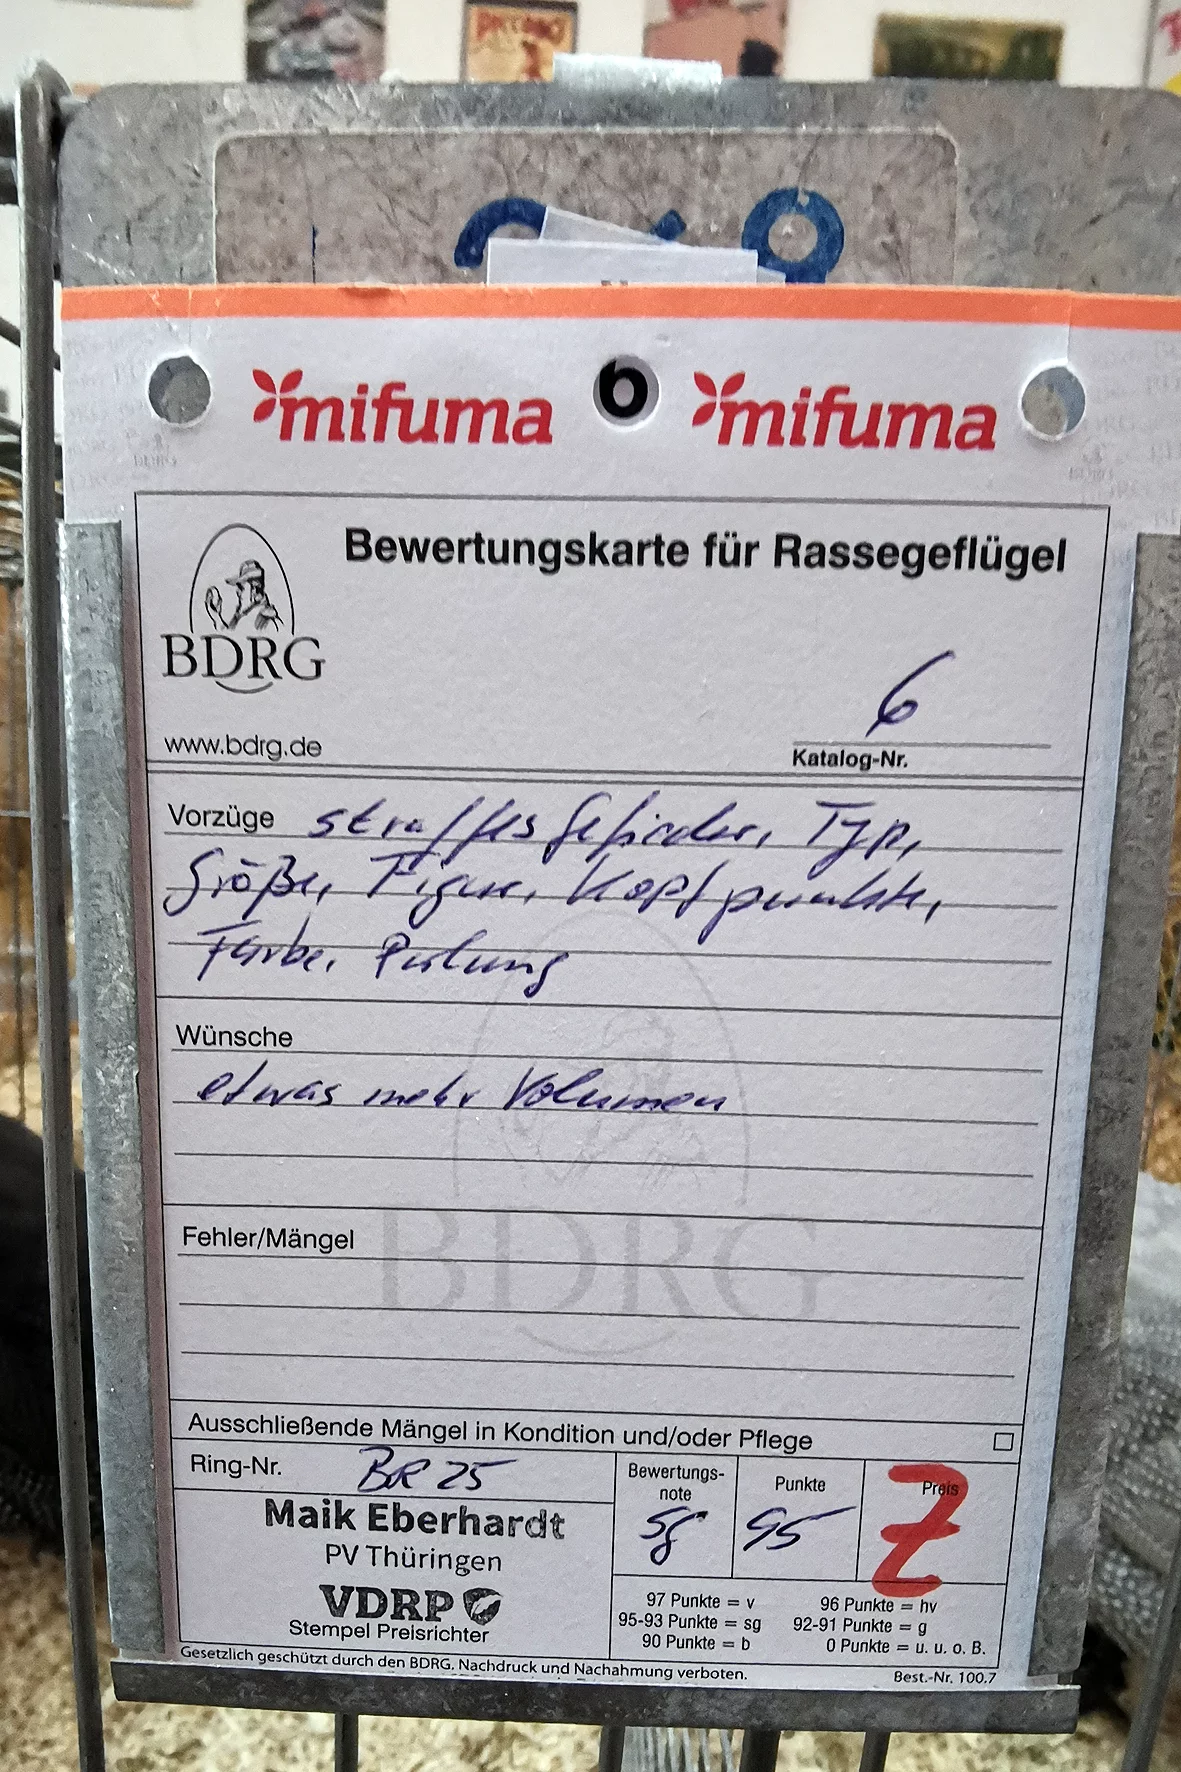 mifuma 6 mifuma
Bewertungskarte für Rassegeflügel
BDRG
6
www.bdrg.de
Katalog-Nr.
Vorzüge straffes Gefieder, Typ,
Größe, Figur, Kopfpunkte,
Farbe, Putung
Wünsche
etwas mehr Volumen
BDRG
Fehler/Mängel
Ausschließende Mängel in Kondition und/oder Pflege
Ring-Nr. BR 25
Bewertungs-
note
sg
Punkte
95
Preis
Z
Maik Eberhardt
PV Thüringen
VDRP
Stempel Preisrichter
97 Punkte = v 96 Punkte = hv
95-93 Punkte = sg 92-91 Punkte = g
90 Punkte = b 0 Punkte = u. u. o. B.
Gesetzlich geschützt durch den BDRG. Nachdruck und Nachahmung verboten.
Best.-Nr. 100.7